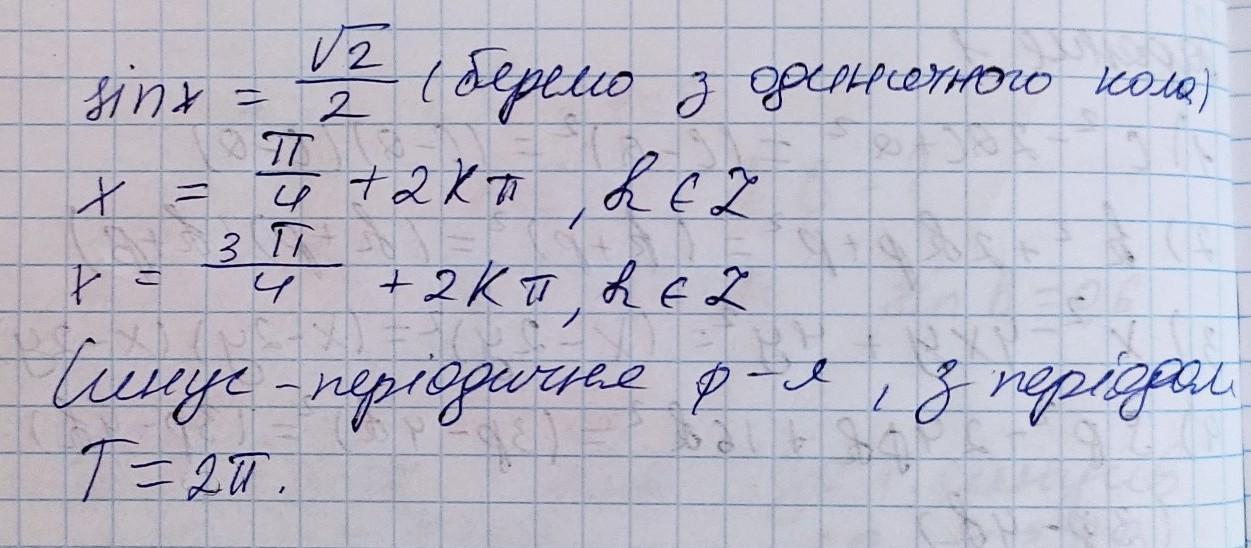 sinx = √2/2 (беремо з одиничного кола)
x = π/4 + 2Kπ, k ∈ Z
x = 3π/4 + 2Kπ, k ∈ Z
Синус - періодична ф-я, з періодом
T = 2π.